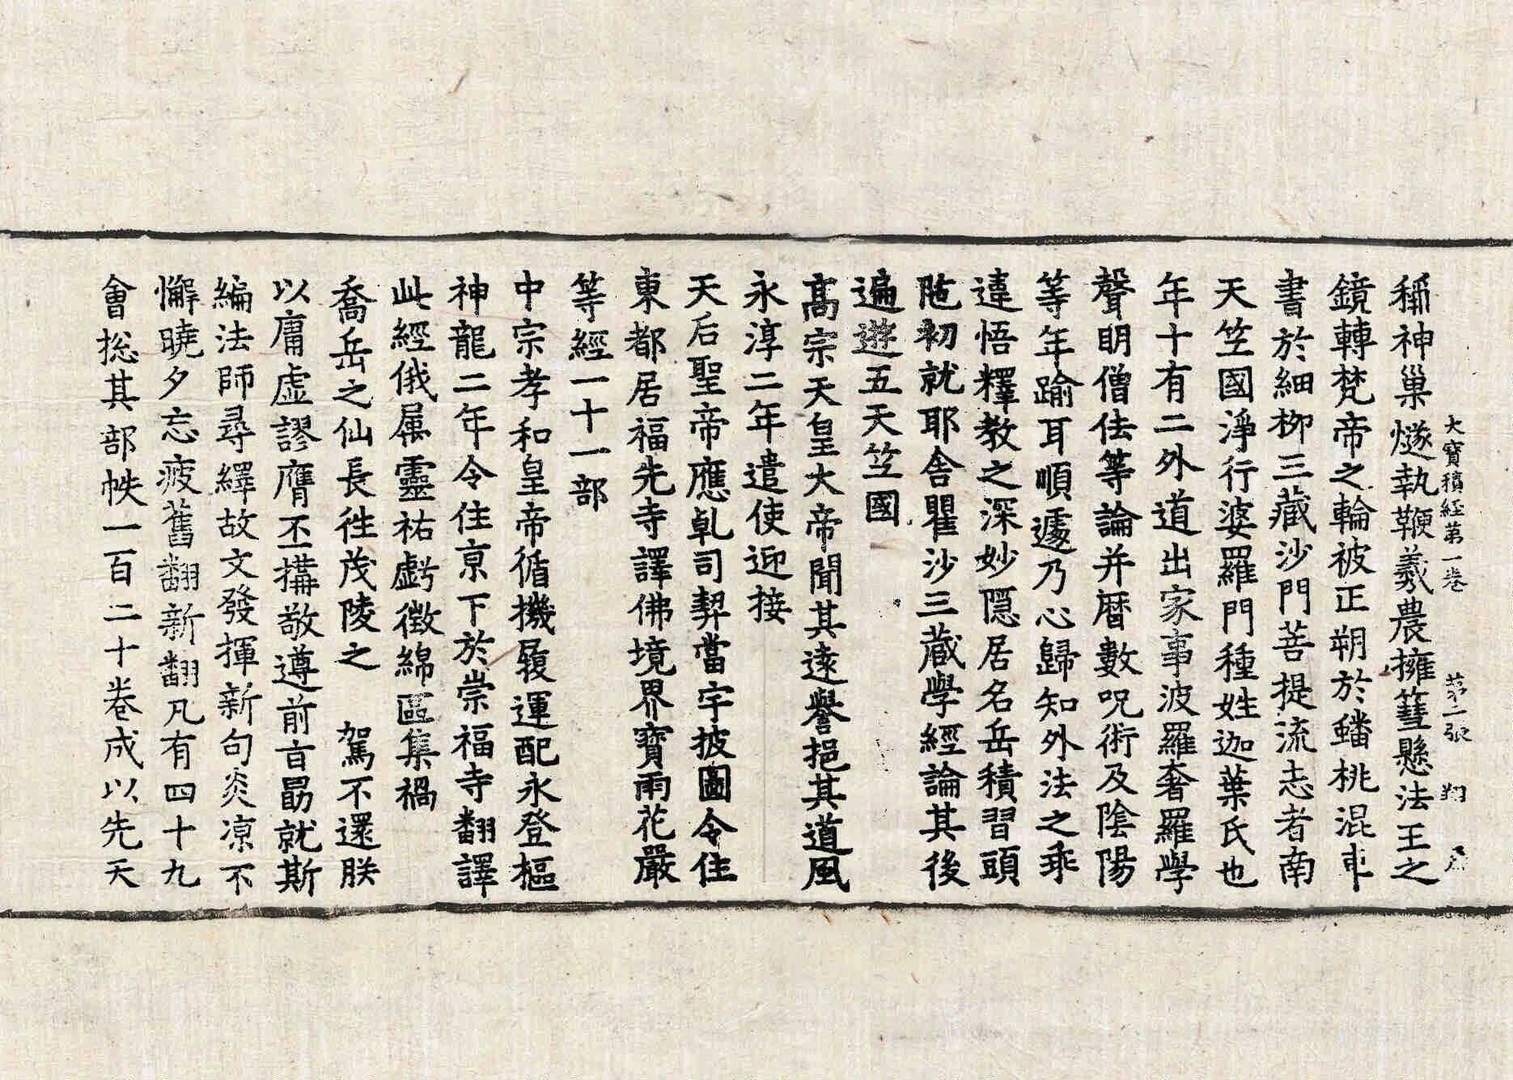 大寶積經第一卷　第二張　翔
稱神巢燧執鞭羲農擁篲懸法王之
鏡轉梵帝之輪被正朔於蟠桃混車
書於細柳三藏沙門菩提流志者南
天竺國淨行婆羅門種姓迦葉氏也
年十有二外道出家事波羅奢羅學
聲明僧佉等論并曆數呪術及陰陽
等年踰耳順遽乃心歸知外法之乖
違悟釋教之深妙隱居名岳積習頭
陁初就耶舍瞿沙三藏學經論其後
遍遊五天竺國
高宗天皇大帝聞其遠譽挹其道風
永淳二年遣使迎接
天后聖帝應乹司契當宇披圖令住
東都居福先寺譯佛境界寶雨花嚴
等經一十一部
中宗孝和皇帝循機履運配永登樞
神龍二年令住京下於崇福寺翻譯
此經俄属靈祐虧徵綿區集禍
喬岳之仙長徃茂陵之　駕不還朕
以庸虛謬膺丕搆敬遵前旨勗就斯
編法師尋繹故文發揮新句炎凉不
懈曉夕忘疲舊翻新翻凡有四十九
會捴其部帙一百二十卷成以先天